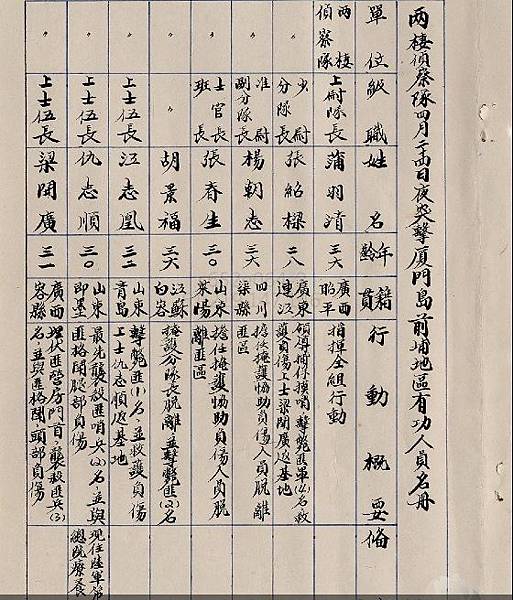 兩棲偵察隊四月二十四日夜突擊廈門島前埔地區有功人員名冊
單位級職姓名年齡籍貫行動概要備
兩棲偵察隊 上尉隊長 蒲羽淯 三六 廣西昭平 指揮全組行動
〃 少尉分隊長 張紹樑 二八 廣東連江 領導捕俘摸哨擊斃匪軍(4)名救護負傷上士梁開廣返基地
〃 准尉副分隊長 楊朝志 三六 四川渠縣 擔任掩護協助負傷人員脫離匪區
〃 士官長班長 張春生 三〇 山東萊陽 擔任掩護協助負傷人員脫離匪區
〃 〃 胡景福 三六 江蘇 掩護分隊長脫離並擊斃匪(2)名
〃 上士伍長 江志凰 三二 山東青島 擊斃匪(1)名並救護負傷上士仇志順返基地
〃 上士伍長 仇志順 三〇 山東即墨 最先襲殺匪哨兵(2)名並與匪格鬥腿部負傷 現住陸軍第總院療養
〃 上士伍長 梁開廣 三一 廣西容縣 埋伏匪營房門首襲殺匪兵(3)名並與匪格鬥頭部負傷